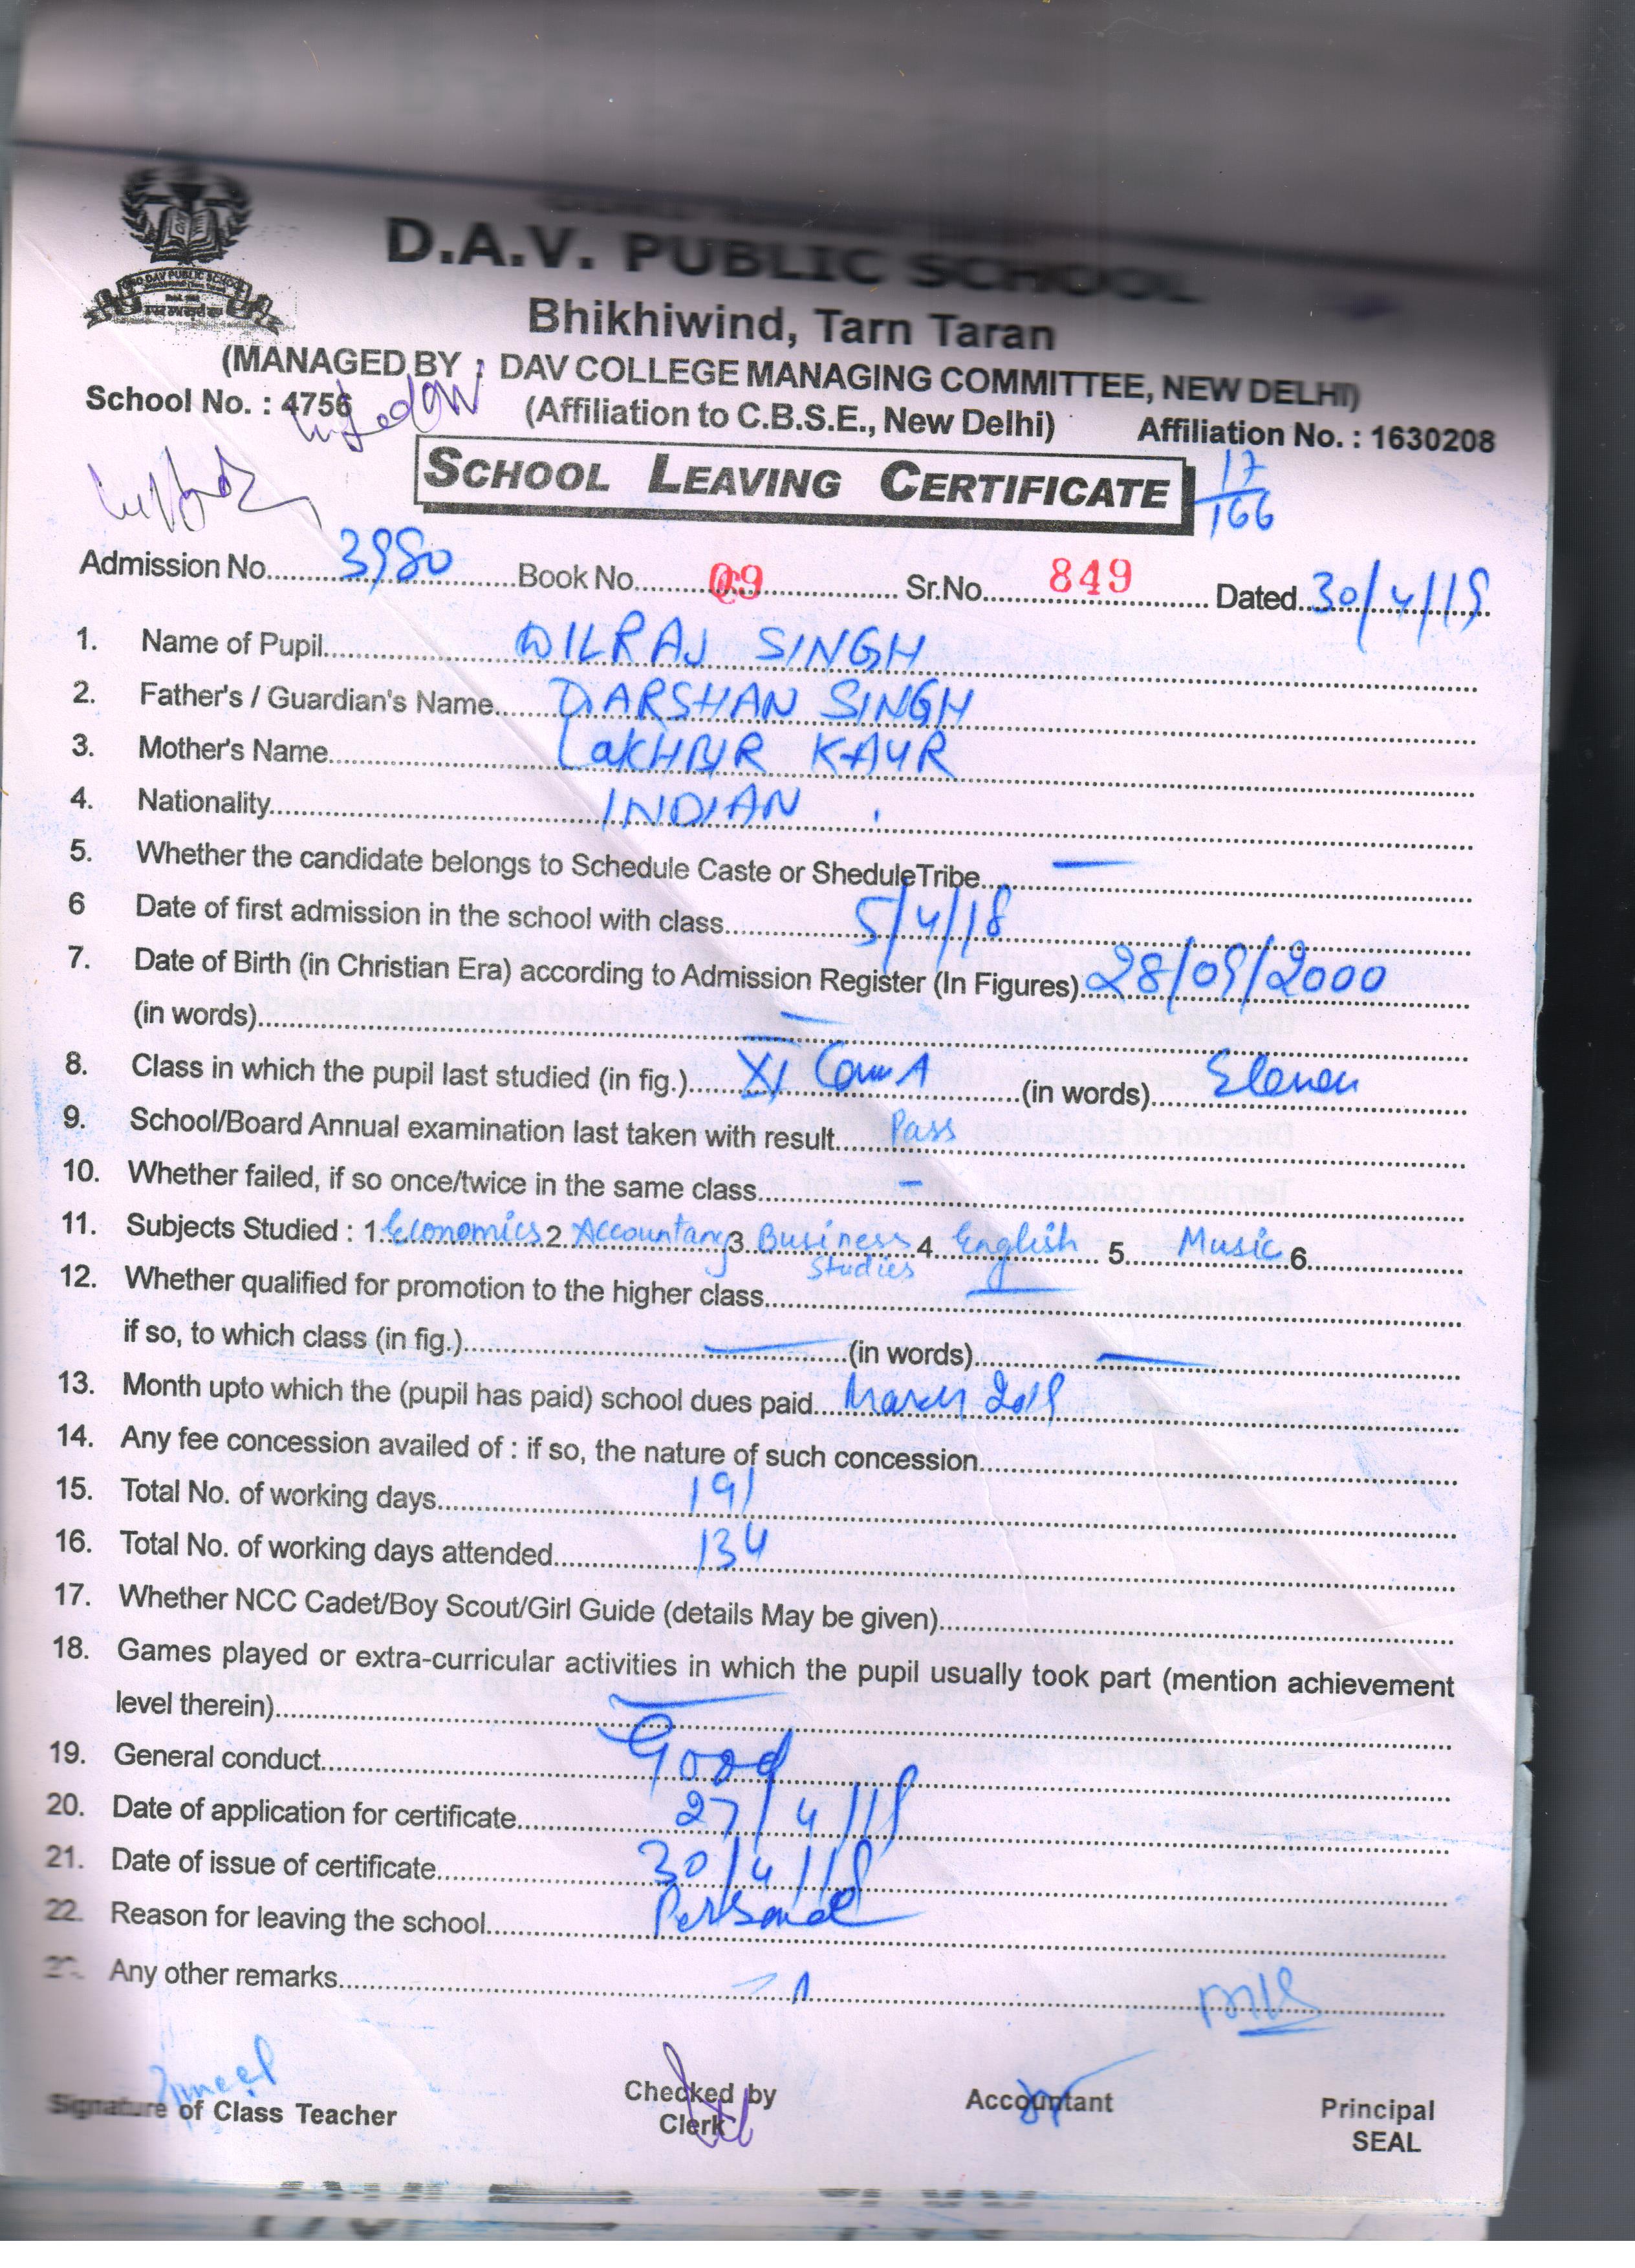 D.A.V. PUBLIC SCHOOL
Bhikhiwind, Tarn Taran
(MANAGED BY : DAV COLLEGE MANAGING COMMITTEE, NEW DELHI)
School No. : 4756 (Affiliation to C.B.S.E., New Delhi) Affiliation No. : 1630208
SCHOOL LEAVING CERTIFICATE 17/166
Admission No. 3980 Book No. 09 Sr.No. 849 Dated 30/4/19
1. Name of Pupil DILRAJ SINGH
2. Father's / Guardian's Name DARSHAN SINGH
3. Mother's Name LAKHBIR KAUR
4. Nationality INDIAN
5. Whether the candidate belongs to Schedule Caste or SheduleTribe —
6 Date of first admission in the school with class 5/4/18
7. Date of Birth (in Christian Era) according to Admission Register (In Figures) 28/09/2000
(in words) —
8. Class in which the pupil last studied (in fig.) XI Com A (in words) Eleven
9. School/Board Annual examination last taken with result Pass
10. Whether failed, if so once/twice in the same class –
11. Subjects Studied : 1 Economics 2 Accountancy 3 Business Studies 4 English 5 Music 6
12. Whether qualified for promotion to the higher class —
if so, to which class (in fig.) — (in words) —
13. Month upto which the (pupil has paid) school dues paid March 2019
14. Any fee concession availed of : if so, the nature of such concession
15. Total No. of working days 191
16. Total No. of working days attended 134
17. Whether NCC Cadet/Boy Scout/Girl Guide (details May be given)
18. Games played or extra-curricular activities in which the pupil usually took part (mention achievement
level therein) —
19. General conduct Good
20. Date of application for certificate 27/4/19
21. Date of issue of certificate 30/4/19
22. Reason for leaving the school Personal
Any other remarks
Signature of Class Teacher Checked by Clerk Accountant Principal
SEAL